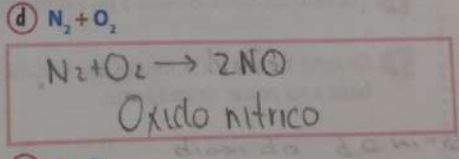 d N₂ + O₂
N₂+O₂ → 2NO
Oxido nitrico